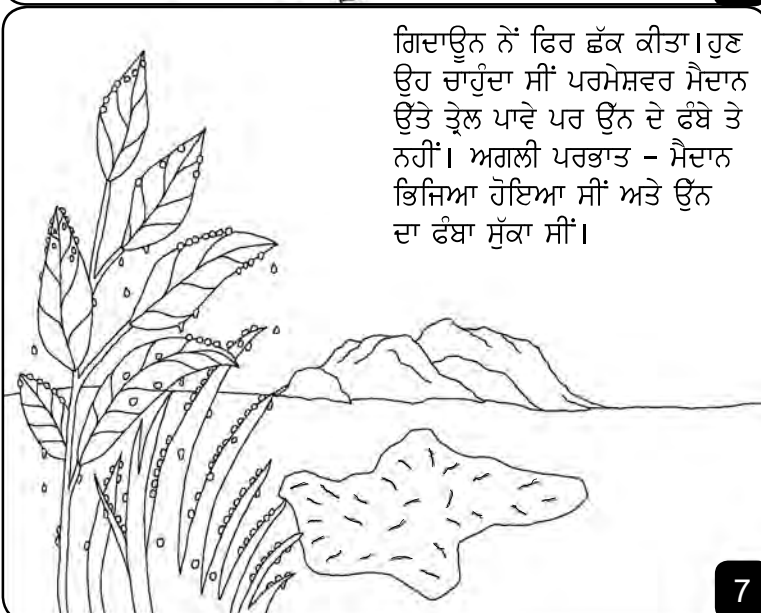 ਗਿਦਾਊਨ ਨੇਂ ਫਿਰ ਛੱਕ ਕੀਤਾ।ਹੁਣ
ਉਹ ਚਾਹੁੰਦਾ ਸੀਂ ਪਰਮੇਸ਼ਵਰ ਮੈਦਾਨ
ਉੱਤੇ ਤ੍ਰੇਲ ਪਾਵੇ ਪਰ ਉੱਨ ਦੇ ਫੰਬੇ ਤੇ
ਨਹੀਂ। ਅਗਲੀ ਪਰਭਾਤ – ਮੈਦਾਨ
ਭਿਜਿਆ ਹੋਇਆ ਸੀਂ ਅਤੇ ਉੱਨ
ਦਾ ਫੰਬਾ ਸੁੱਕਾ ਸੀਂ।
7